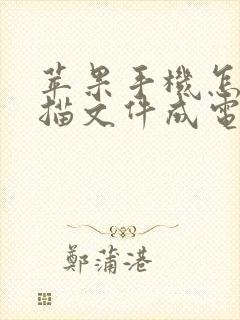 苹果手機怎
描文件成電
鄭蒲港